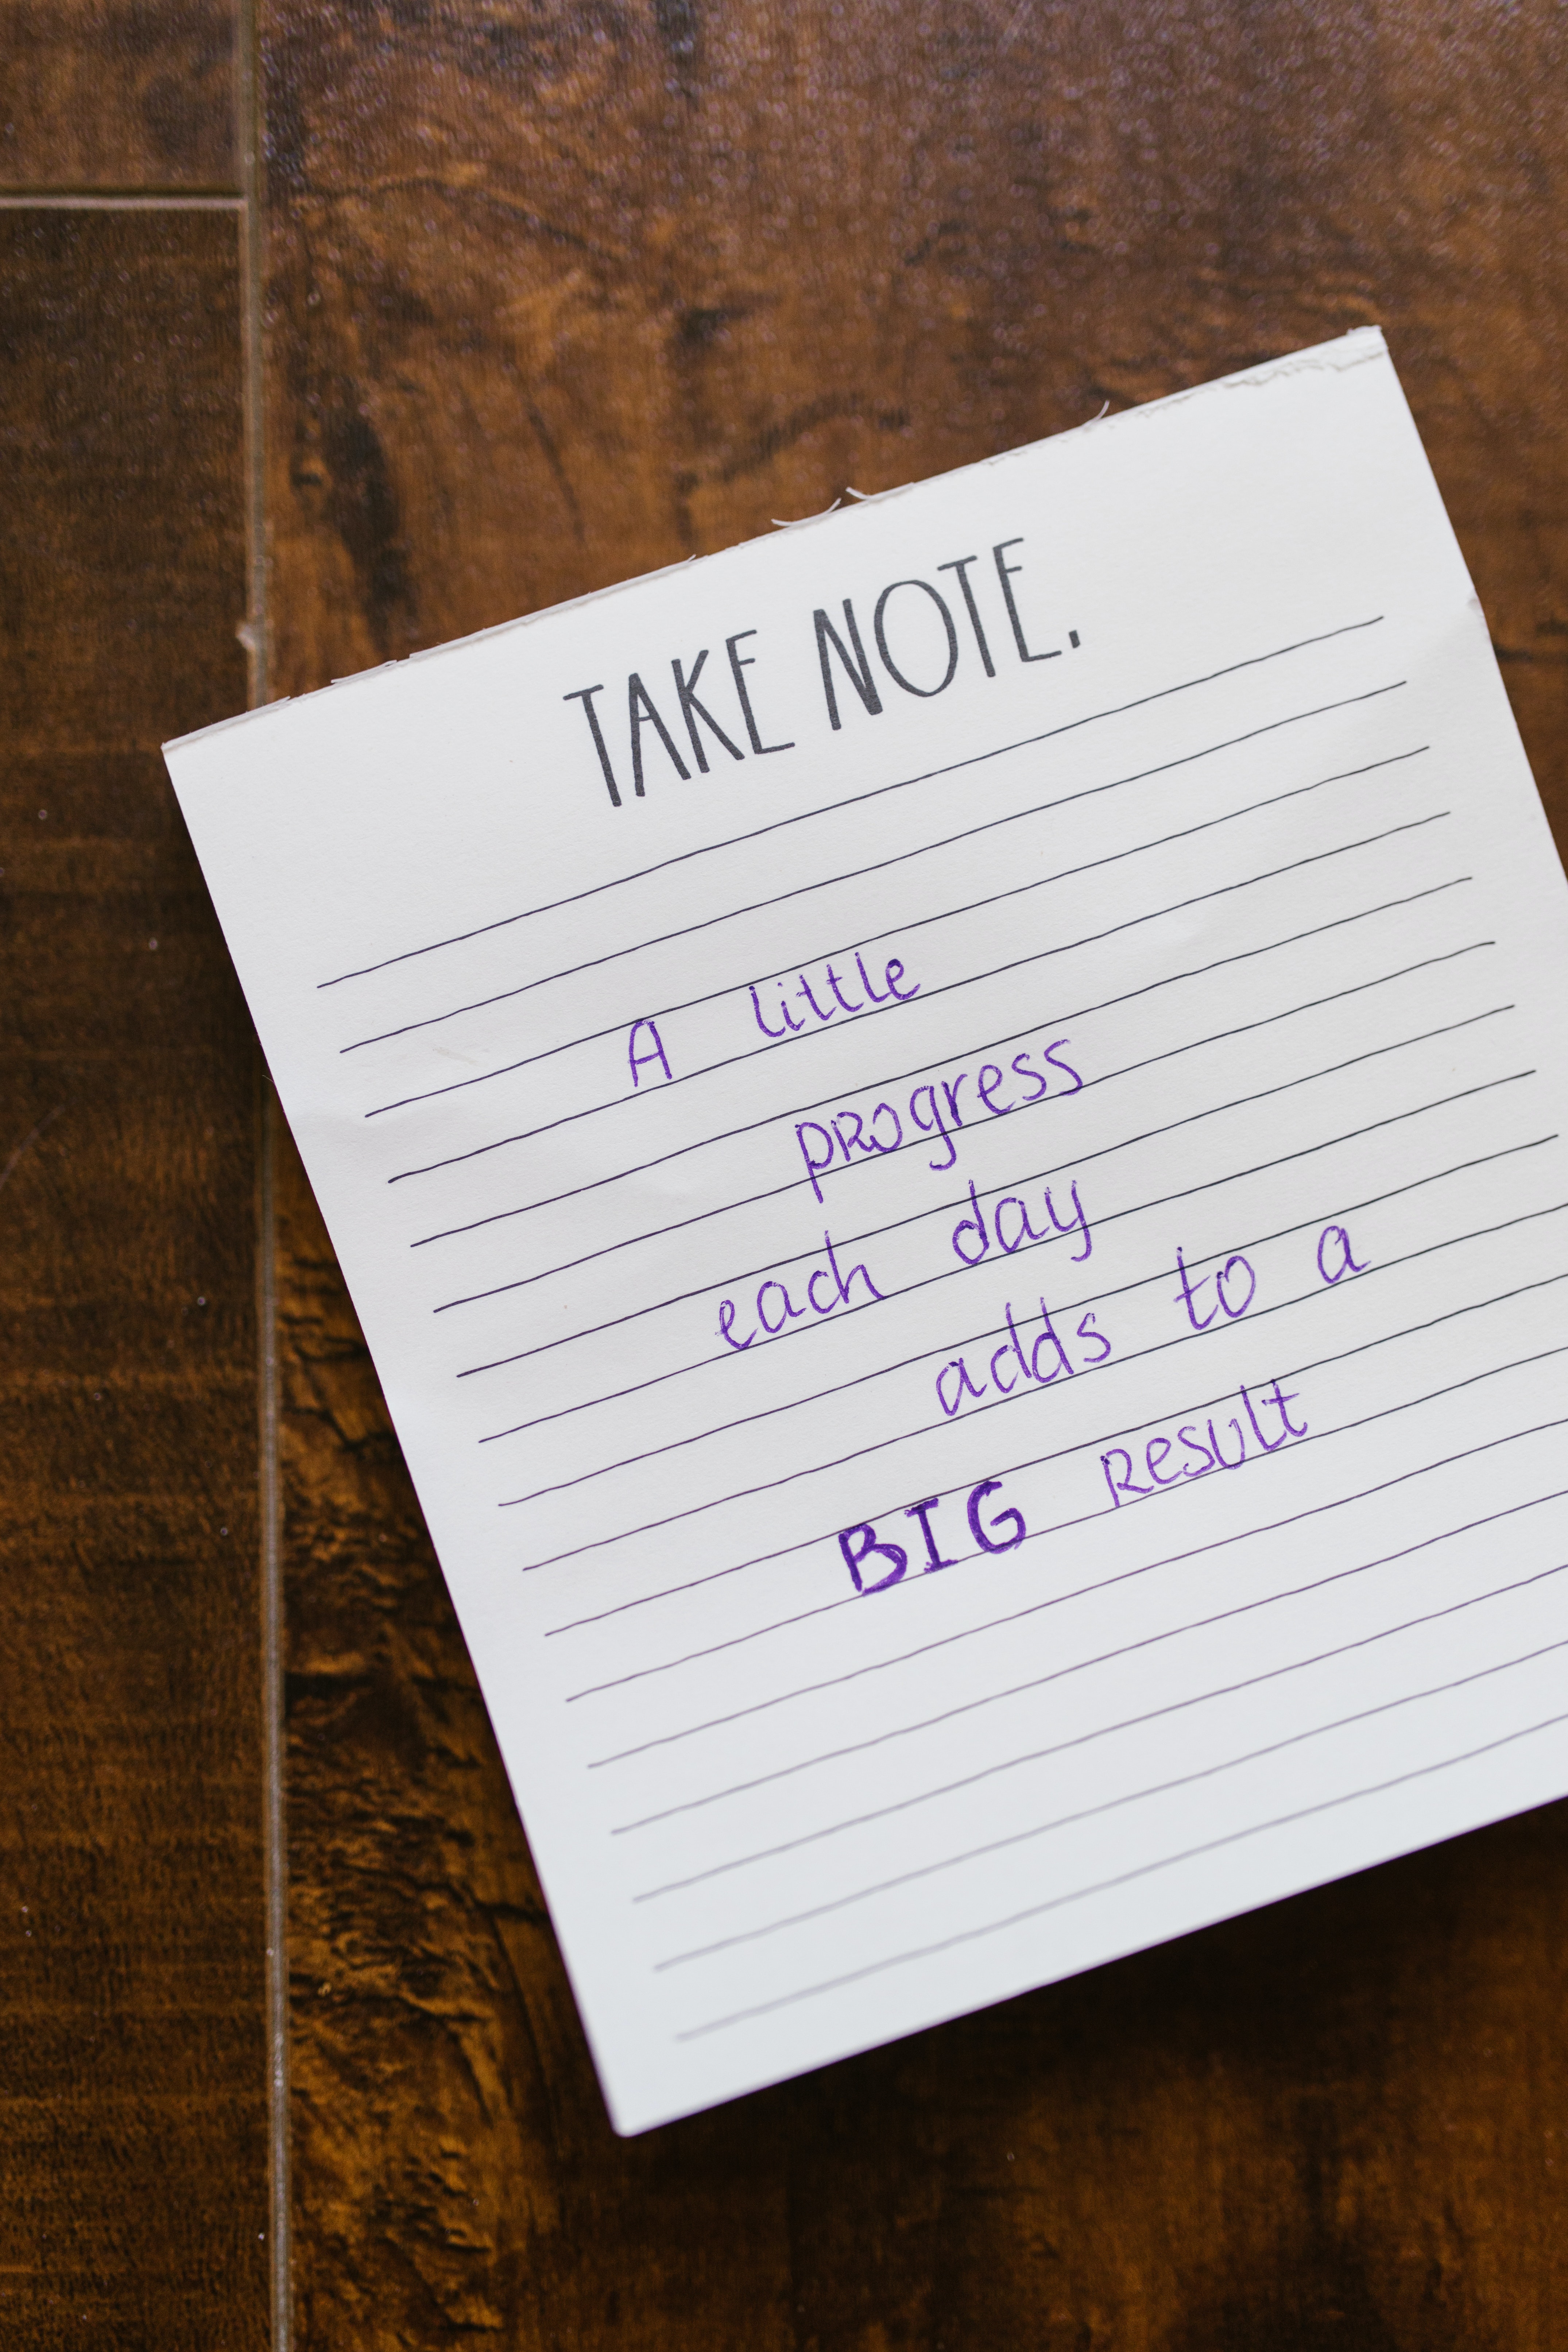 TAKE NOTE.
A little
progress
each day
adds to a
BIG Result